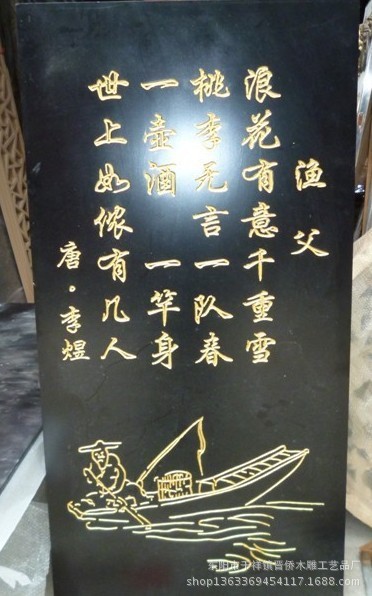 渔父
浪花有意千重雪
桃李无言一队春
一壶酒 一竿身
世上如侬有几人
唐。李煜
莱阳市于祥镇晋侨木雕工艺品厂
shop1363369454117.1688.com